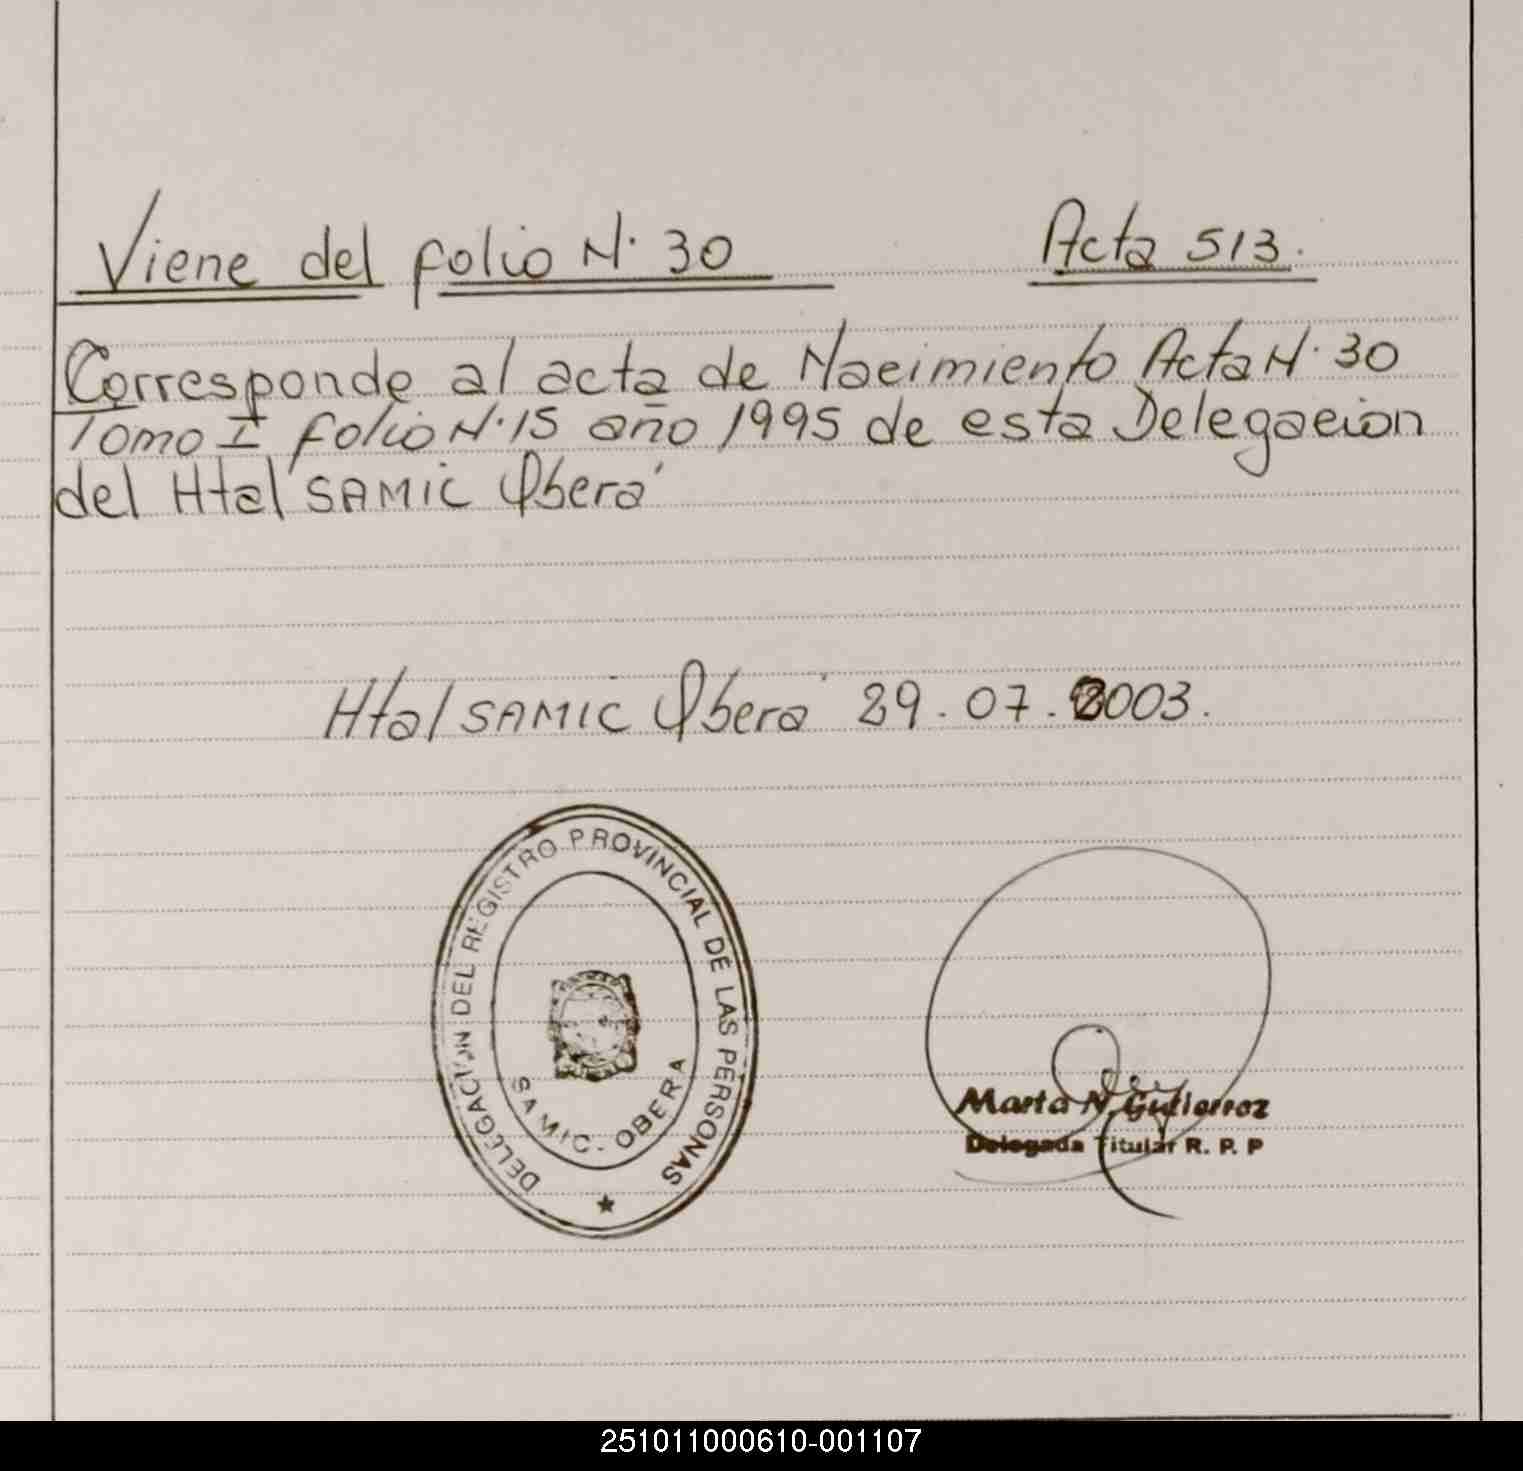 Viene del folio N· 30 Acta 513.
Corresponde al acta de Nacimiento Acta N· 30
Tomo I folio N·15 año 1995 de esta Delegacion
del Htal SAMIC Oberá
Htal SAMIC Oberá 29.07.2003.
DELEGACION DEL REGISTRO PROVINCIAL DE LAS PERSONAS
SAMIC - OBERA
Marta N. Gutierrez
Delegada Titular R. P. P
251011000610-001107